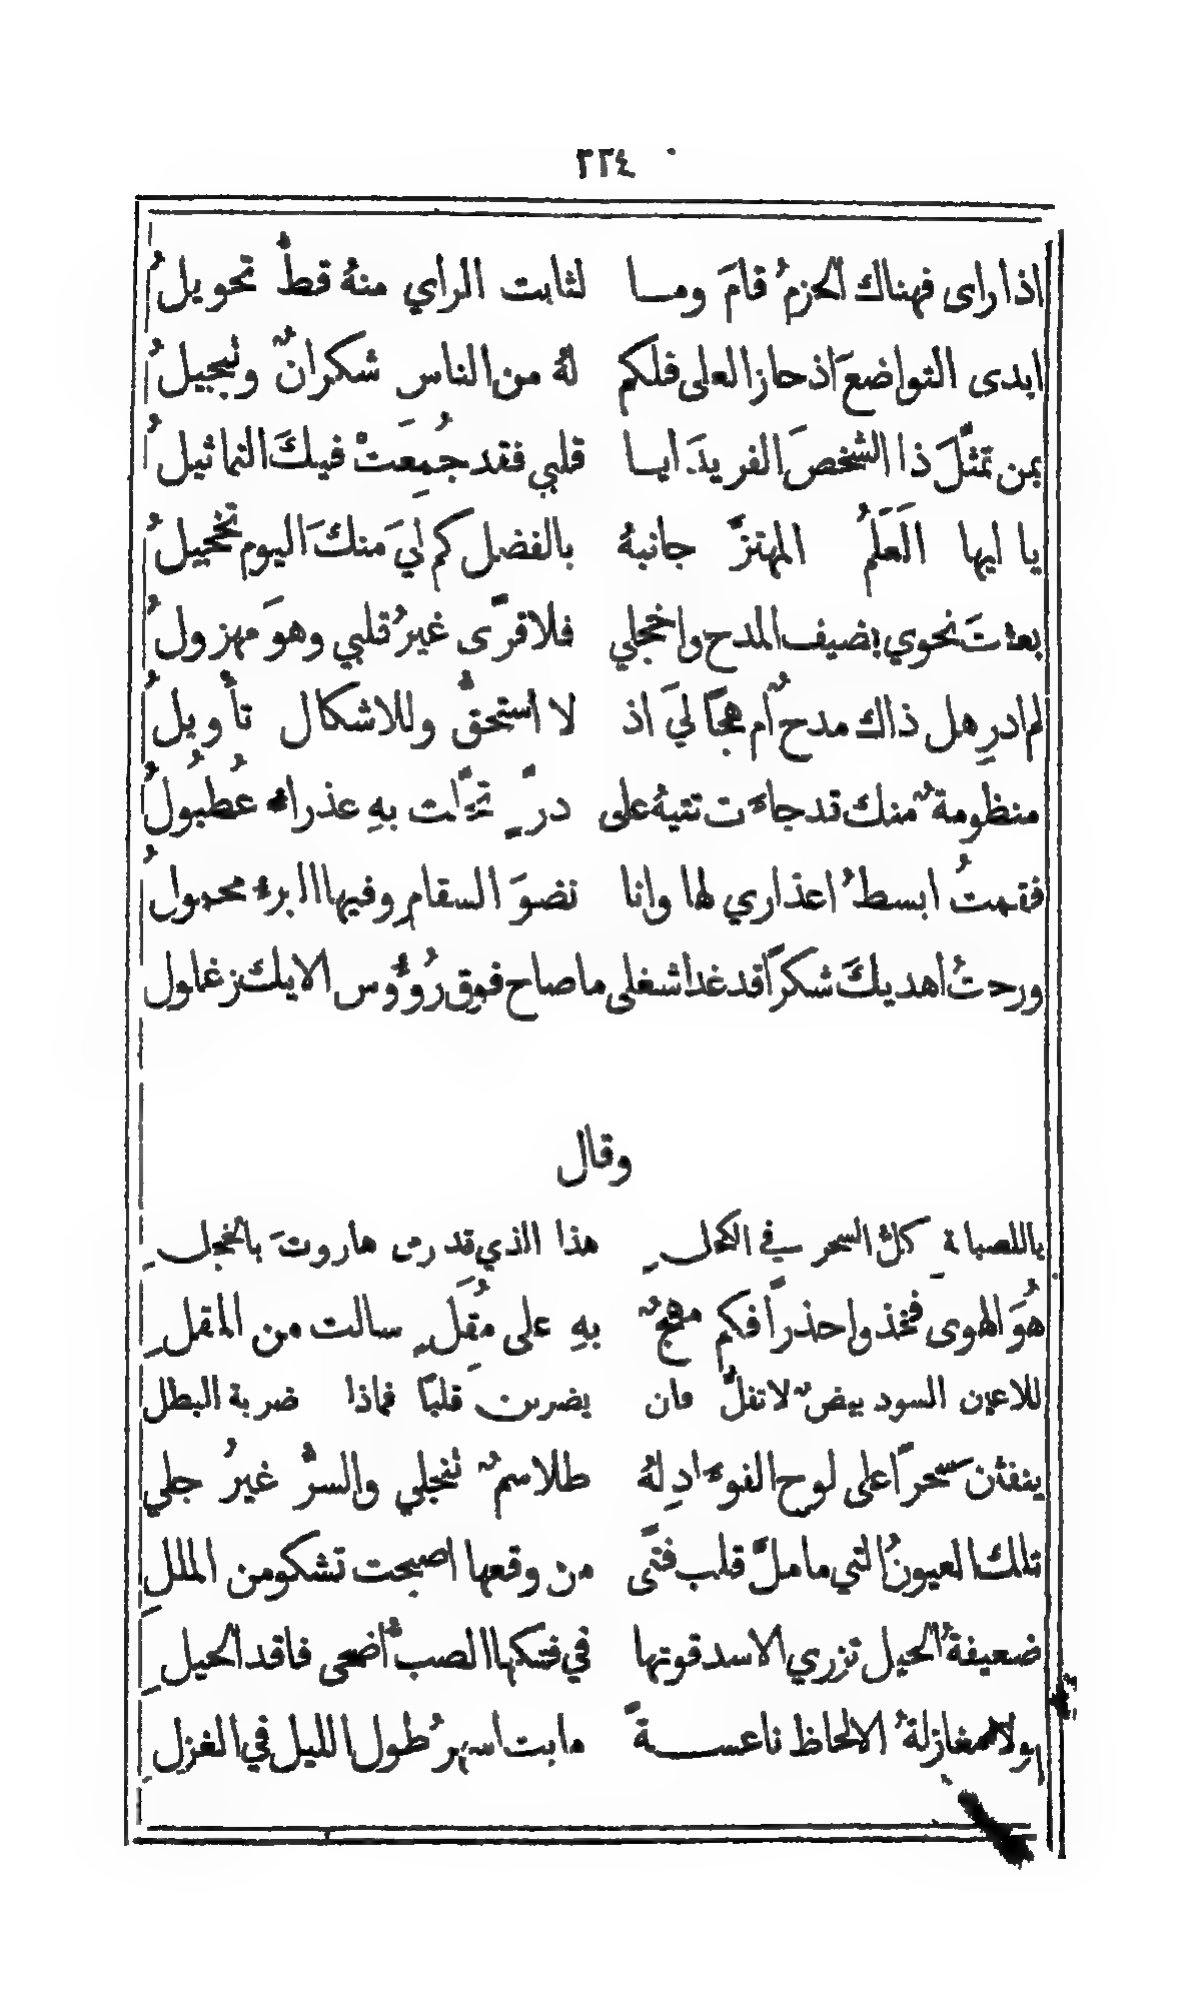 ٢٢٤
اذا راى فهناك الحزمُ قامَ وما لثابت الراي منهُ قطُّ تحويلُ
ابدى التواضعَ اذ حاز العلى فلكم لهُ من الناس شكرانٌ وتبجيلُ
بمن تمثّلَ ذا الشخصَ الفريدَ ايا قلبي فقد جُمِعَتْ فيكَ التماثيلُ
يا ايها العَلَمُ المهتزُّ جانبهُ بالفضل كم ليَ منكَ اليوم تخجيلُ
بعثتَ نحوي بضيف المدح واخجلي فلا قرًى غيرُ قلبي وهوَ مهزولُ
لم ادرِ هل ذاك مدحٌ ام هجًا ليَ اذ لا استحقُّ وللاشكال تأويلُ
منظومةٌ منك قد جاءَت تتيهُ على درٍّ تحلَّت بهِ عذراءُ عُطبُولُ
فقمتُ ابسطُ اعذاري لها وانا نضوَ السقام وفيها البرءُ محمولُ
ورحتُ اهديكَ شكرًا قد غدا شغلى ما صاح فوق رُؤُوس الايك زغلول
وقال
ياللصبابة كلُّ السحر في الكحلِ هذا الذي قد رمى هاروتَ بالخجلِ
هُوَ الهوى فخذوا حذرًا فكم مهجٌ بهِ على مُقَلٍ سالت من المقلِ
للاعين السود بيضٌ لا تفلُّ فان يضربن قلبًا فماذا ضربة البطل
ينفثن سحرًا على لوح الفوءَادِ لهُ طلاسمٌ تنجلي والسرُّ غيرُ جلي
تلك العيونُ التي ما ملَّ قلب فتًى من وقعها اصبحت تشكو من الملل
ضعيفةُ الحيل تزري الاسد قوتها في فتكها الصبُّ اضحى فاقد الحيلِ
لولا مغازلةُ الالحاظ ناعسةً ما بت اسهرُ طول الليل في الغزلِ